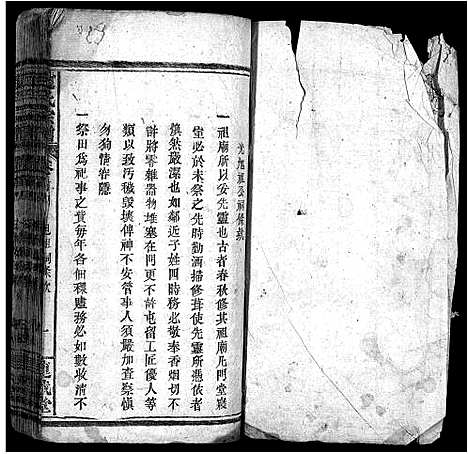 光旭祖公祠條款
一祖廟所以妥先靈也古者春秋修其祖廟凡門堂寢
室必於未祭之先時勤洒掃修葺使先靈所憑依者
煥然嚴潔也如鄰近子姓四時務必敬奉香烟切不
許將零雜器物堆塞在門更不許屯留工匠優人等
類以致污穢毀壞俾神不安管事人須嚴加查察慎
勿狥情容隱
一祭田為祀事之資每年各佃穫賬務必如數收清不